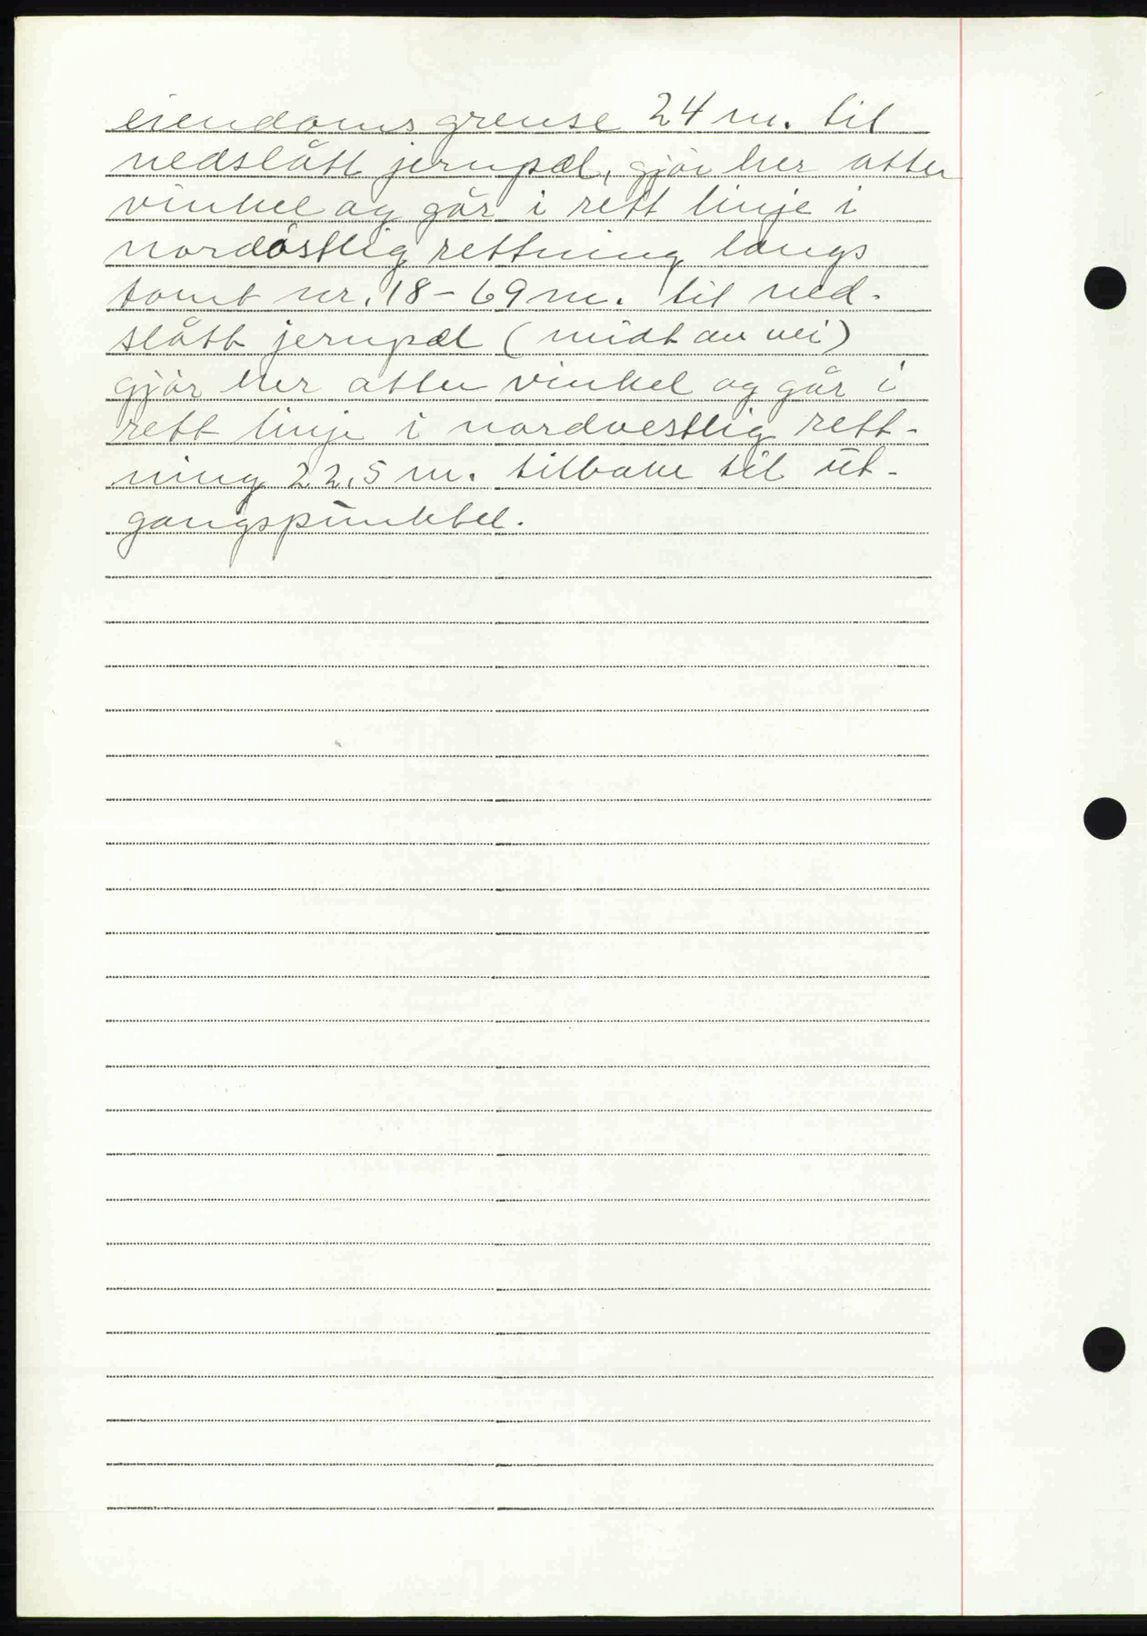 eiendoms grense 24 m. til
nedslått jernpæl, gjör her atter
vinkel og går i rett linje i
nordöstlig rettning langs
tomt nr. 18 - 69 m. til ned-
slått jernpæl (midt av vei)
gjör her atter vinkel og går i
rett linje i nordvestlig rett-
ning 22,5 m. tilbake til ut-
gangspunktet.